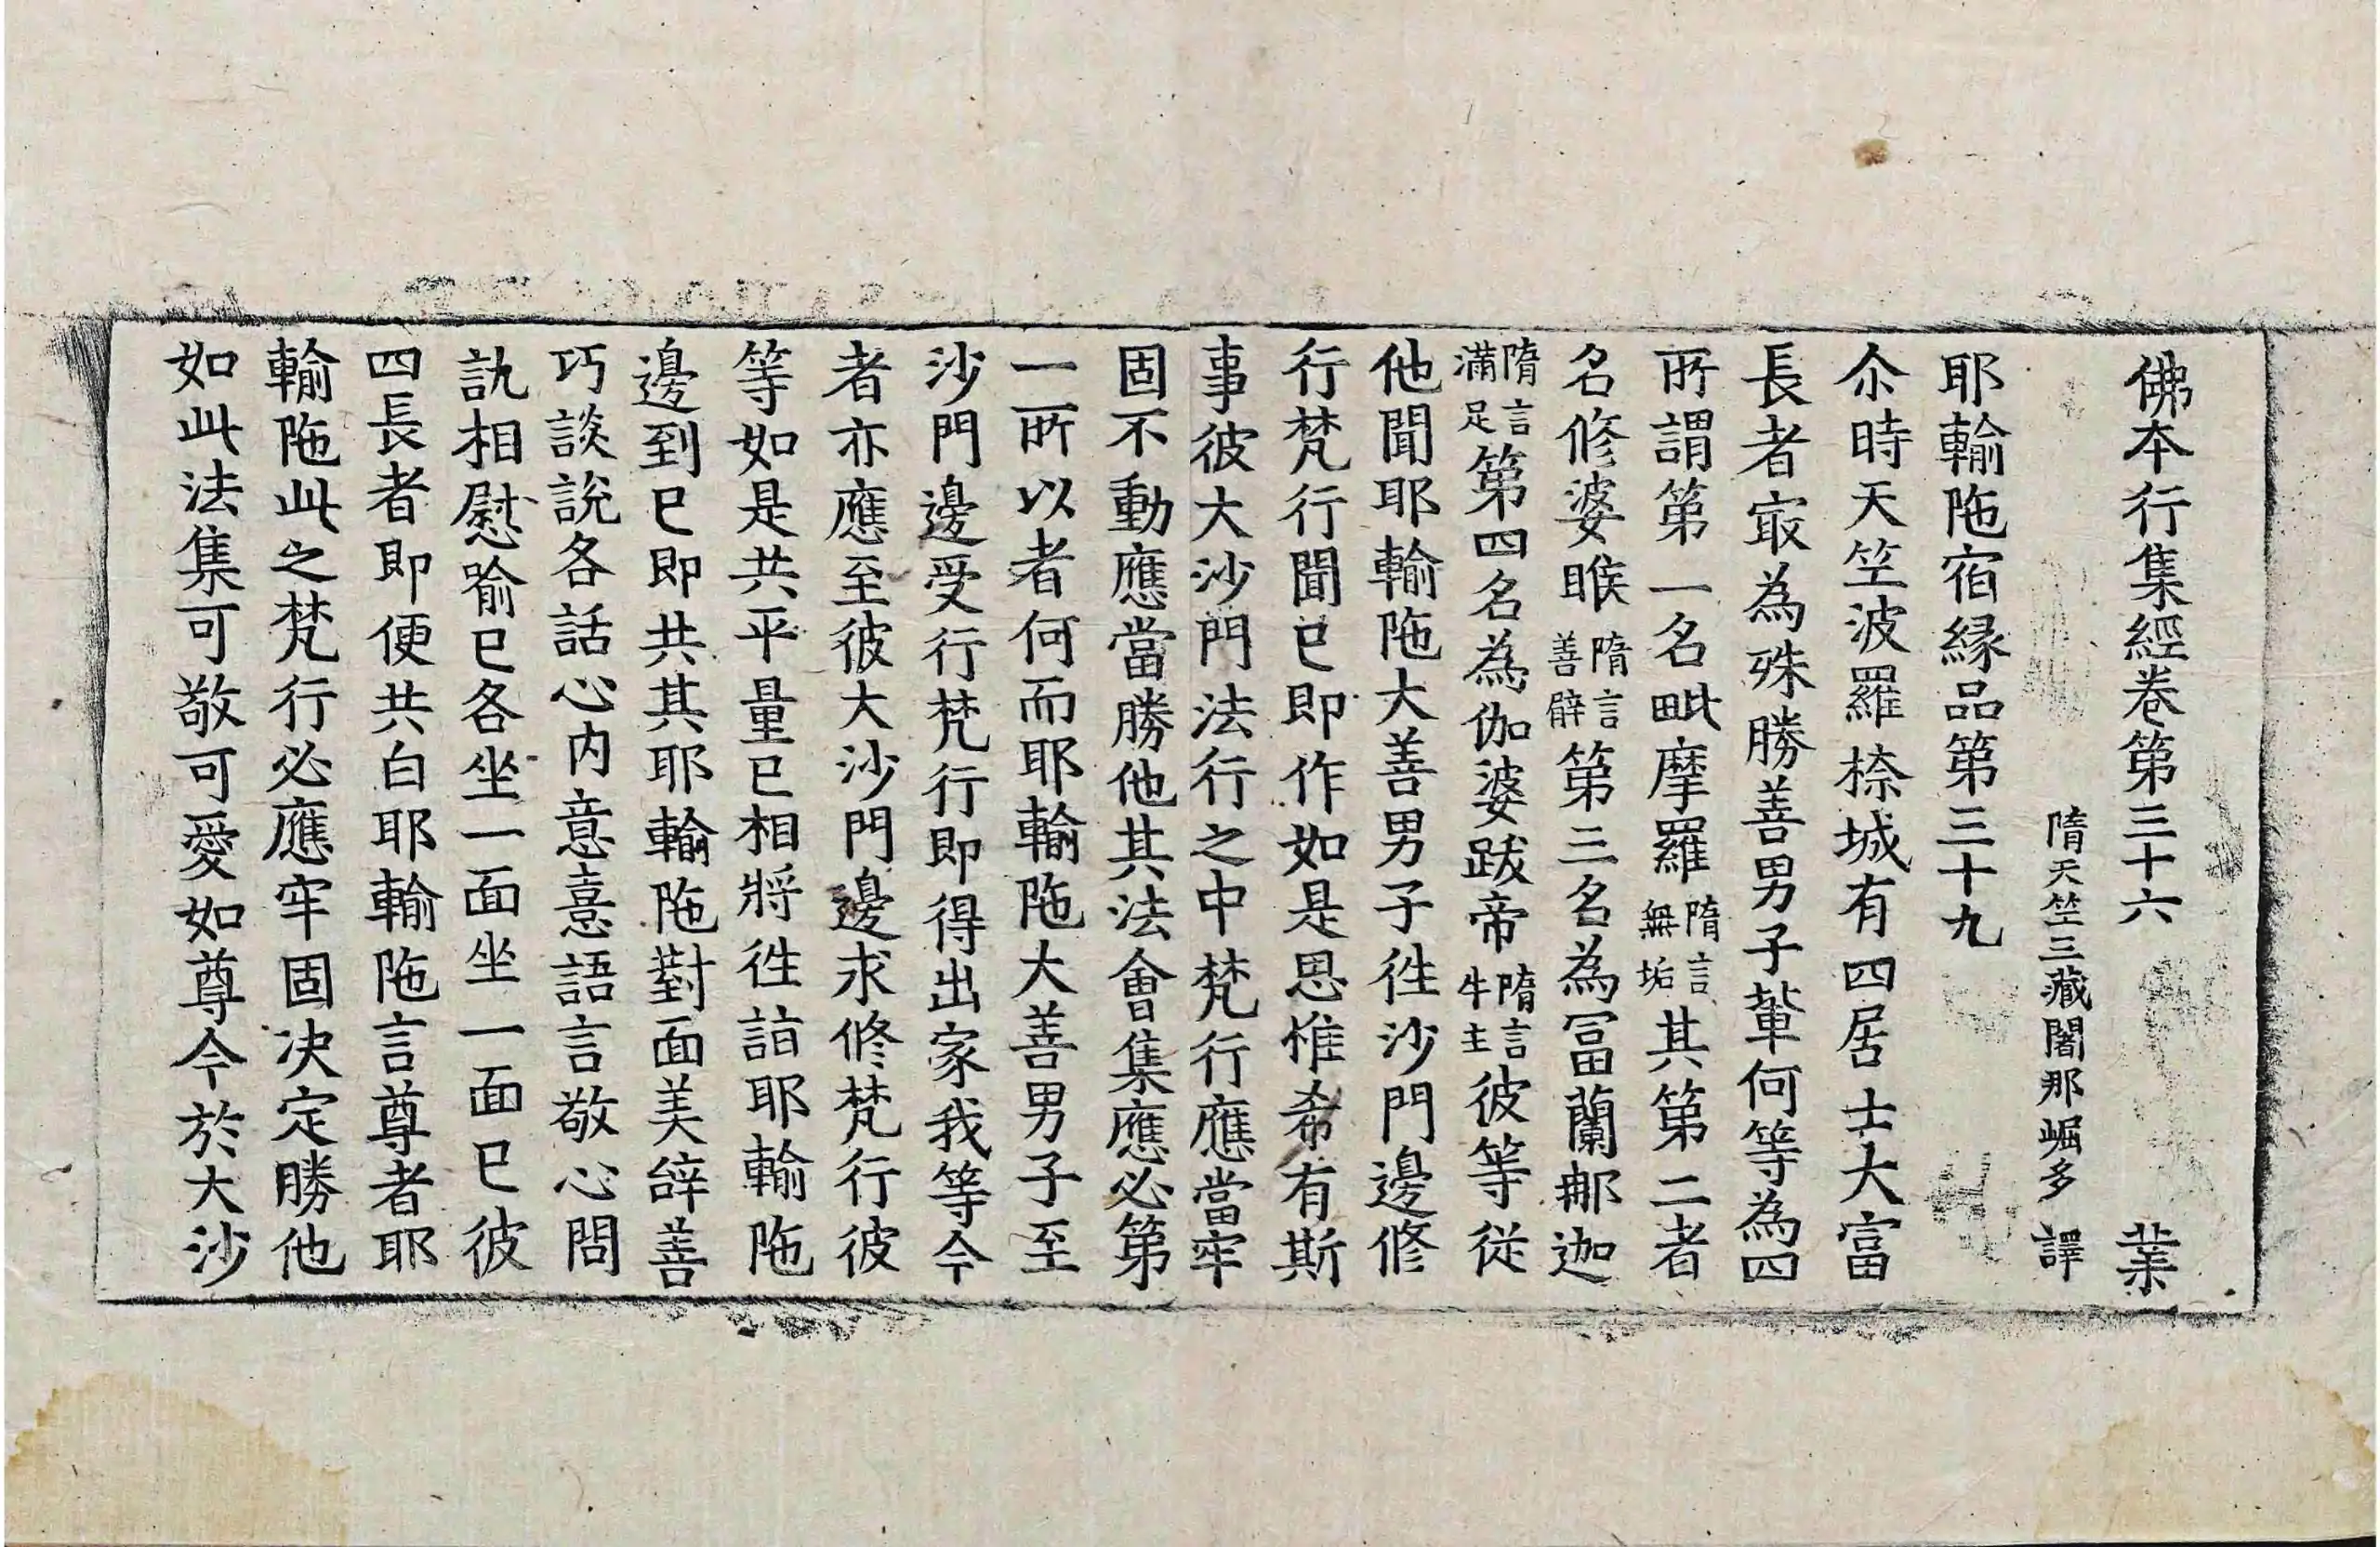 佛本行集經卷第三十六　業
隋天竺三藏闍那崛多　譯
耶輸陁宿縁品第三十九
尒時天竺波羅㮈城有四居士大富
長者㝡為殊勝善男子輩何等為四
所謂第一名毗摩羅隋言無垢其第二者
名修婆睺隋言善臂第三名為冨蘭那迦
隋言滿足第四名為伽婆跋帝隋言牛主彼等從
他聞耶輸陁大善男子徃沙門邊修
行梵行聞已即作如是思惟希有斯
事彼大沙門法行之中梵行應當牢
固不動應當勝他其法會集應必第
一所以者何而耶輸陁大善男子至
沙門邊受行梵行即得出家我等今
者亦應至彼大沙門邊求修梵行彼
等如是共平量已相將徃詣耶輸陁
邊到已即共其耶輸陁對面美辝善
巧談說各話心内意憙語言敬心問
訊相慰喻已各坐一面坐一面已彼
四長者即便共白耶輸陁言尊者耶
輸陁此之梵行必應牢固决定勝他
如此法集可敬可愛如尊今於大沙